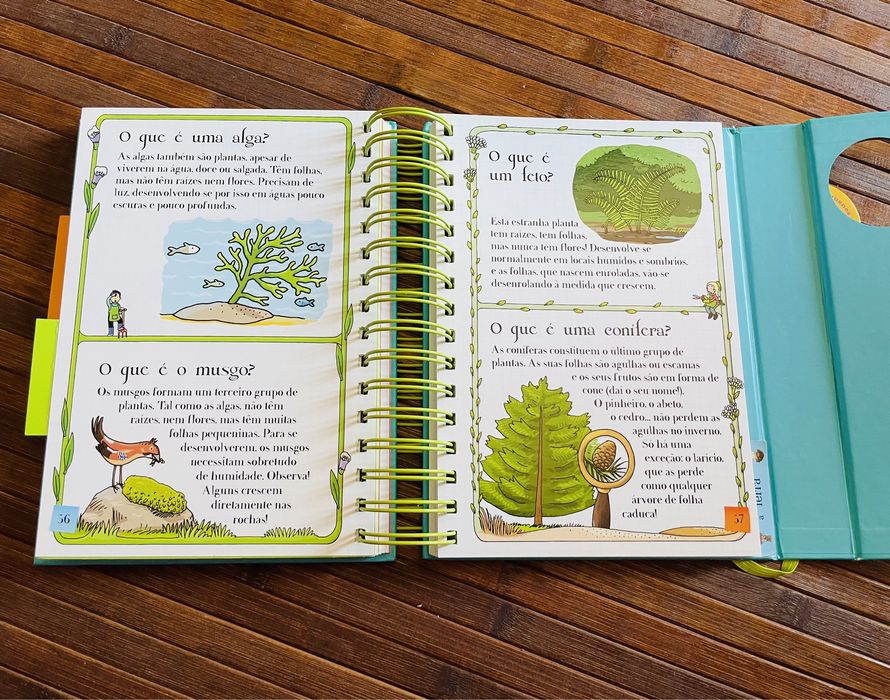 O que é uma alga?
As algas também são plantas, apesar de
viverem na água, doce ou salgada. Têm folhas,
mas não têm raízes nem flores. Precisam de
luz, desenvolvendo-se por isso em águas pouco
escuras e pouco profundas.
O que é o musgo?
Os musgos formam um terceiro grupo de
plantas. Tal como as algas, não têm
raízes, nem flores, mas têm muitas
folhas pequeninas. Para se
desenvolverem, os musgos
necessitam sobretudo
de humidade. Observa!
Alguns crescem
diretamente nas
rochas!
56
O que é
um feto?
Esta estranha planta
tem raízes, tem folhas,
mas nunca tem flores! Desenvolve-se
normalmente em locais húmidos e sombrios,
e as folhas, que nascem enroladas, vão-se
desenrolando à medida que crescem.
O que é uma conífera?
As coníferas constituem o último grupo de
plantas. As suas folhas são agulhas ou escamas
e os seus frutos são em forma de
cone (daí o seu nome!).
O pinheiro, o abeto,
o cedro... não perdem as
agulhas no inverno.
Só há uma
exceção: o larício,
que as perde
como qualquer
árvore de folha
caduca!
57